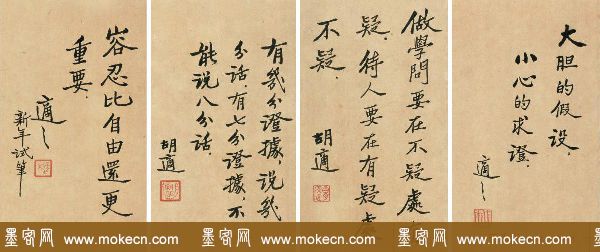 容忍比自由還更
重要.
適之
新年試筆
有幾分證據,說幾
分話.有七分證據,不
能說八分話.
胡適
做學問要在不疑處
疑.待人要在有疑處
不疑.
胡適
大胆的假設,
小心的求證.
適之
墨客网 www.mokecn.com 墨客网 www.mokecn.com 墨客网 www.mokecn.com 墨客网 www.mokecn.com